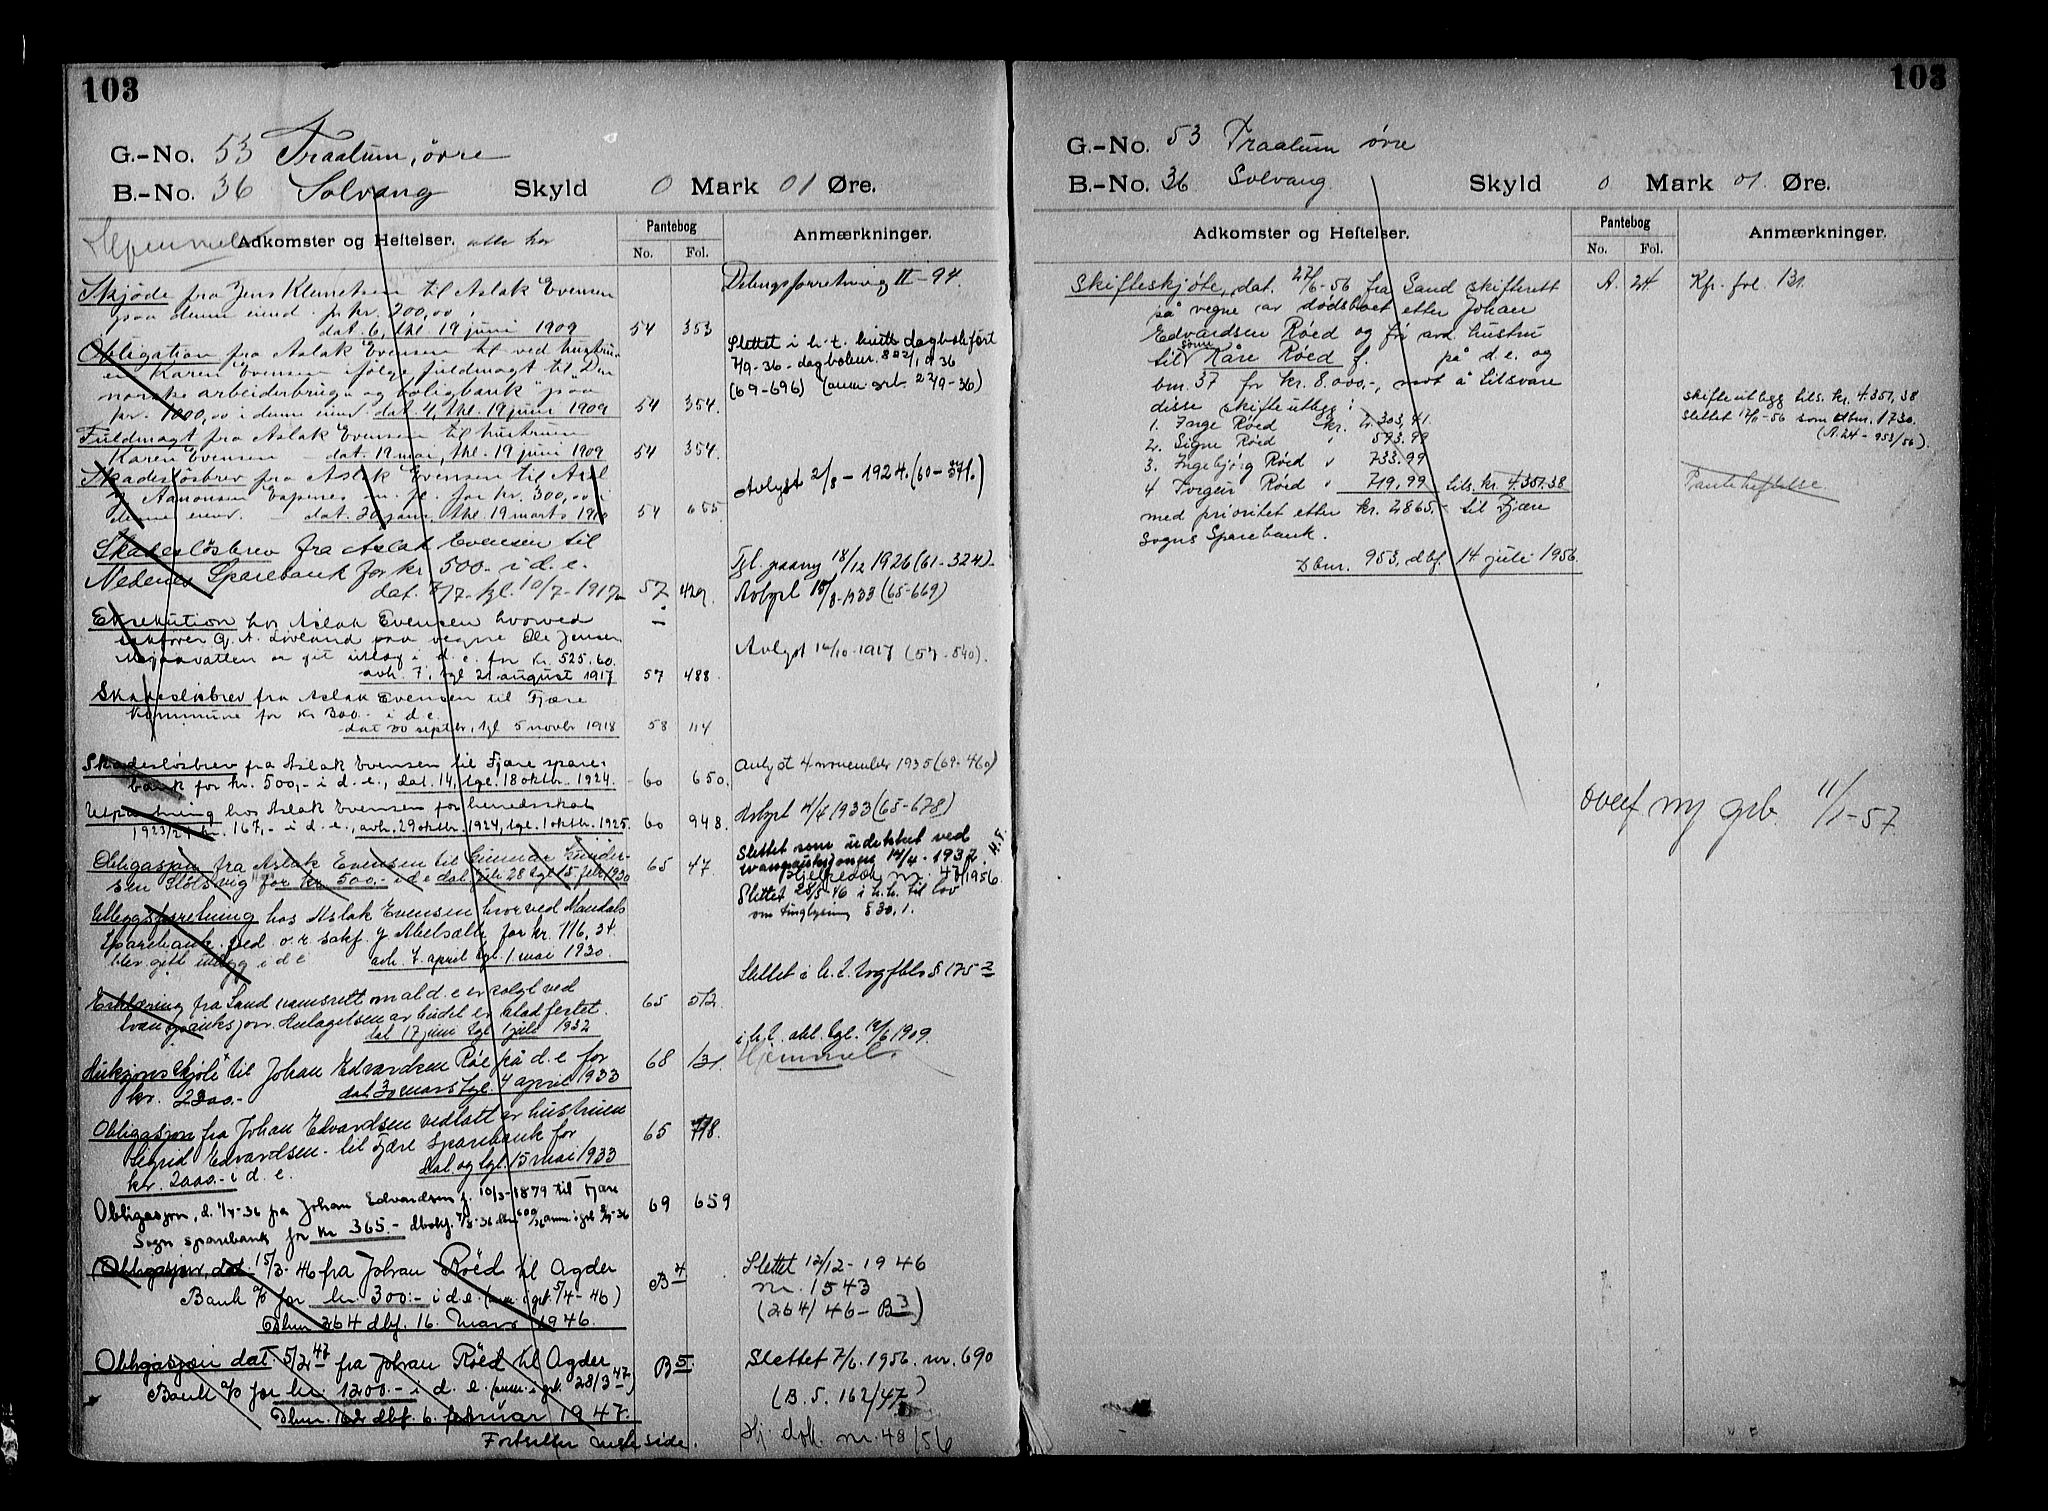 103
G.-No. 53 Traalum, øvre
B.-No. 36 Solvang Skyld 0 Mark 01 Øre.
Adkomster og Heftelser.
Pantebog
No. Fol.
Anmærkninger.
Skjøde fra Jens Klemetsen til Aslak Evensen
paa denne eiend. for kr. 200,00
dat. 6, thl. 19 juni 1909 54 353
Delingsforretning II-94.
Obligation fra Aslak Evensen til ved hustru
Karen Evensen ifølge fuldmagt til Den
norske arbeiderbruk og boligbank paa
kr. 1000,00 i denne eiend. dat. 4, thl. 19 juni 1909 54 354.
Slettet i h. t.
(69-696)
Fuldmagt fra Aslak Evensen til hustruen
Karen Evensen dat. 19 mai, thl. 19 juni 1909 54 354.
Skadesløsbrev fra Aslak Evensen til
Aamonsen m. fl. for kr. 300,00 i
denne eiend. dat. 20 jan, thl. 19 marts 1910 54 655
Avlyst 2/8 - 1924. (60-371.)
Skadesløsbrev fra Aslak Evensen til
Nedenes Sparebank for kr 500.- i d. e.
dat. 7/7 - tgl. 10/7 - 1917 57 429
Tgl. paany 18/12 1926 (61-324).
Avlyst 1933 (65-669)
Eksekution hos Aslak Evensen hvorved
sakfører O. A. Løvland paa vegne Ole Jensen
er git utlæg i d. e. for kr. 525.60.
avh. 7, tgl. 21 august 1917 57 488
Avlyst 16/10-1917 (57-540).
Skadesløsbrev fra Aslak Evensen til Fjære
Kommune for kr 300.- i d. e.
dat 30 septbr, tgl 5 novbr 1918 58 114
Skadesløsbrev fra Aslak Evensen til Fjære spare-
bank for kr. 500,- i d. e., dat. 14, tgl. 18 oktbr. 1924. 60 650.
Avlyst 4 november 1935 (69-460)
Utpantning hos Aslak Evensen for herredsskat
1923/24 kr. 167,- i d. e., avh. 29 oktbr. 1924, tgl. 1 oktbr. 1925. 60 948.
Avlyst 4/4 1933 (65-678)
Obligasjon fra Aslak Evensen til Gunder Gunder-
sen Stølsvig for kr 500.- i d e dat juli 28 tgl 15 juli 1930 65 47
Slettet som udekket ved
tvangsauksjonen 12/4 - 1932. H.F.
Hjelpedok nr. 47/1956.
Utleggsforretning hos Aslak Evensen hvorved Mandals
Sparebank ved o. r. sakf. for kr. 116,34.
blev gitt utlegg i d e avh. 7. april tgl. 1 mai 1930
Slettet 28/5-46 i h. h. til lov
om tinglysning § 30, 1.
Erklæring fra Sand namsrett om at d. e er solgt ved
tvangsauksjon. Antagelsen av budet er stadfestet.
dat 17 juni tgl. 1 juli 1932 65 512
Slettet i h. t. tvgfbls § 175 2
Auksjonsskjøte til Johan Edvardsen Røe på d. e for
kr. 2200.- dat 30 mars tgl. 4 april 1933 68 131.
Hjemmel.
Obligasjon fra Johan Edvardsen vedtatt av hustruen
Sigrid Edvardsen - til Fjære Sparebank for
kr. 2000.- i d. e. dat og tgl. 15 mai 1933 65 718.
Obligasjon, d. 1/7-36 fra Johan Edvardsen f. 10/3-1879 til Fjære
Sogn sparebank for kr 365.- 69 659
Obligasjon, dat 15/3-46 fra Johan Røed til Agder
Bank A/S for kr. 300:- i d. e. (anm. i grb. 5/4-46)
Dbnr 264 dbf. 16. Mars 1946. B 4
Slettet 12/12-1946
nr. 1543
(264/46-B3)
Obligasjon dat. 5/2 47 fra Johan Røed til Agder
Bank A/S for kr. 1200.- i d. e. (anm. i grb. 28/3 47.)
Dbnr. 162 dbf. 6. februar 1947. B 5.
Slettet 7/6. 1956. nr. 690
(B. 5. 162/47)
Fortsetter neste side.
Hj: dok. nr. 48/56
103
G.-No. 53 Traalum øvre
B.-No. 36 Solvang Skyld 0 Mark 01. Øre.
Adkomster og Heftelser.
Pantebog
No. Fol.
Anmærkninger.
Skifteskjøte, dat. 27/6-56 fra Sand skifterett A. 24 Kfr. fol. 131.
på vegne av dødsboet etter Johan
Edvardsen Røed og før avd. hustru
til sønn Kåre Røed f. på d. e. og
bnr. 37 for kr. 8.000.-, mot å tilsvare
disse skifteutlegg:
1. Inge Røed kr. 2.303,41.
2. Signe Røed " 593.99
3. Ingebjørg Røed " 733.99
4 Torgeir Røed " 719.99 tils. kr. 4.351.38
med prioritet etter kr. 2865.- til Fjære
Sogns Sparebank.
Dbnr. 953, dbf. 14 juli 1956.
skifteutlegg tils. kr. 4.351,38
slettet 17/11-56 som dbnr. 1730.
(A. 24 - 953/56).
Pantheftelse
overf ny grb. 11/1-57